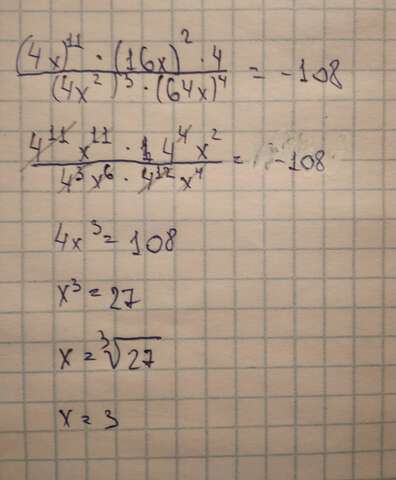 (4x)^11 · (16x)^2 · 4 / (4x^2)^3 · (64x)^4 = -108
4^11 x^11 · 4^4 x^2 / 4^3 x^6 · 4^12 x^4 = -108
4x^3 = 108
x^3 = 27
x = ∛27
x = 3